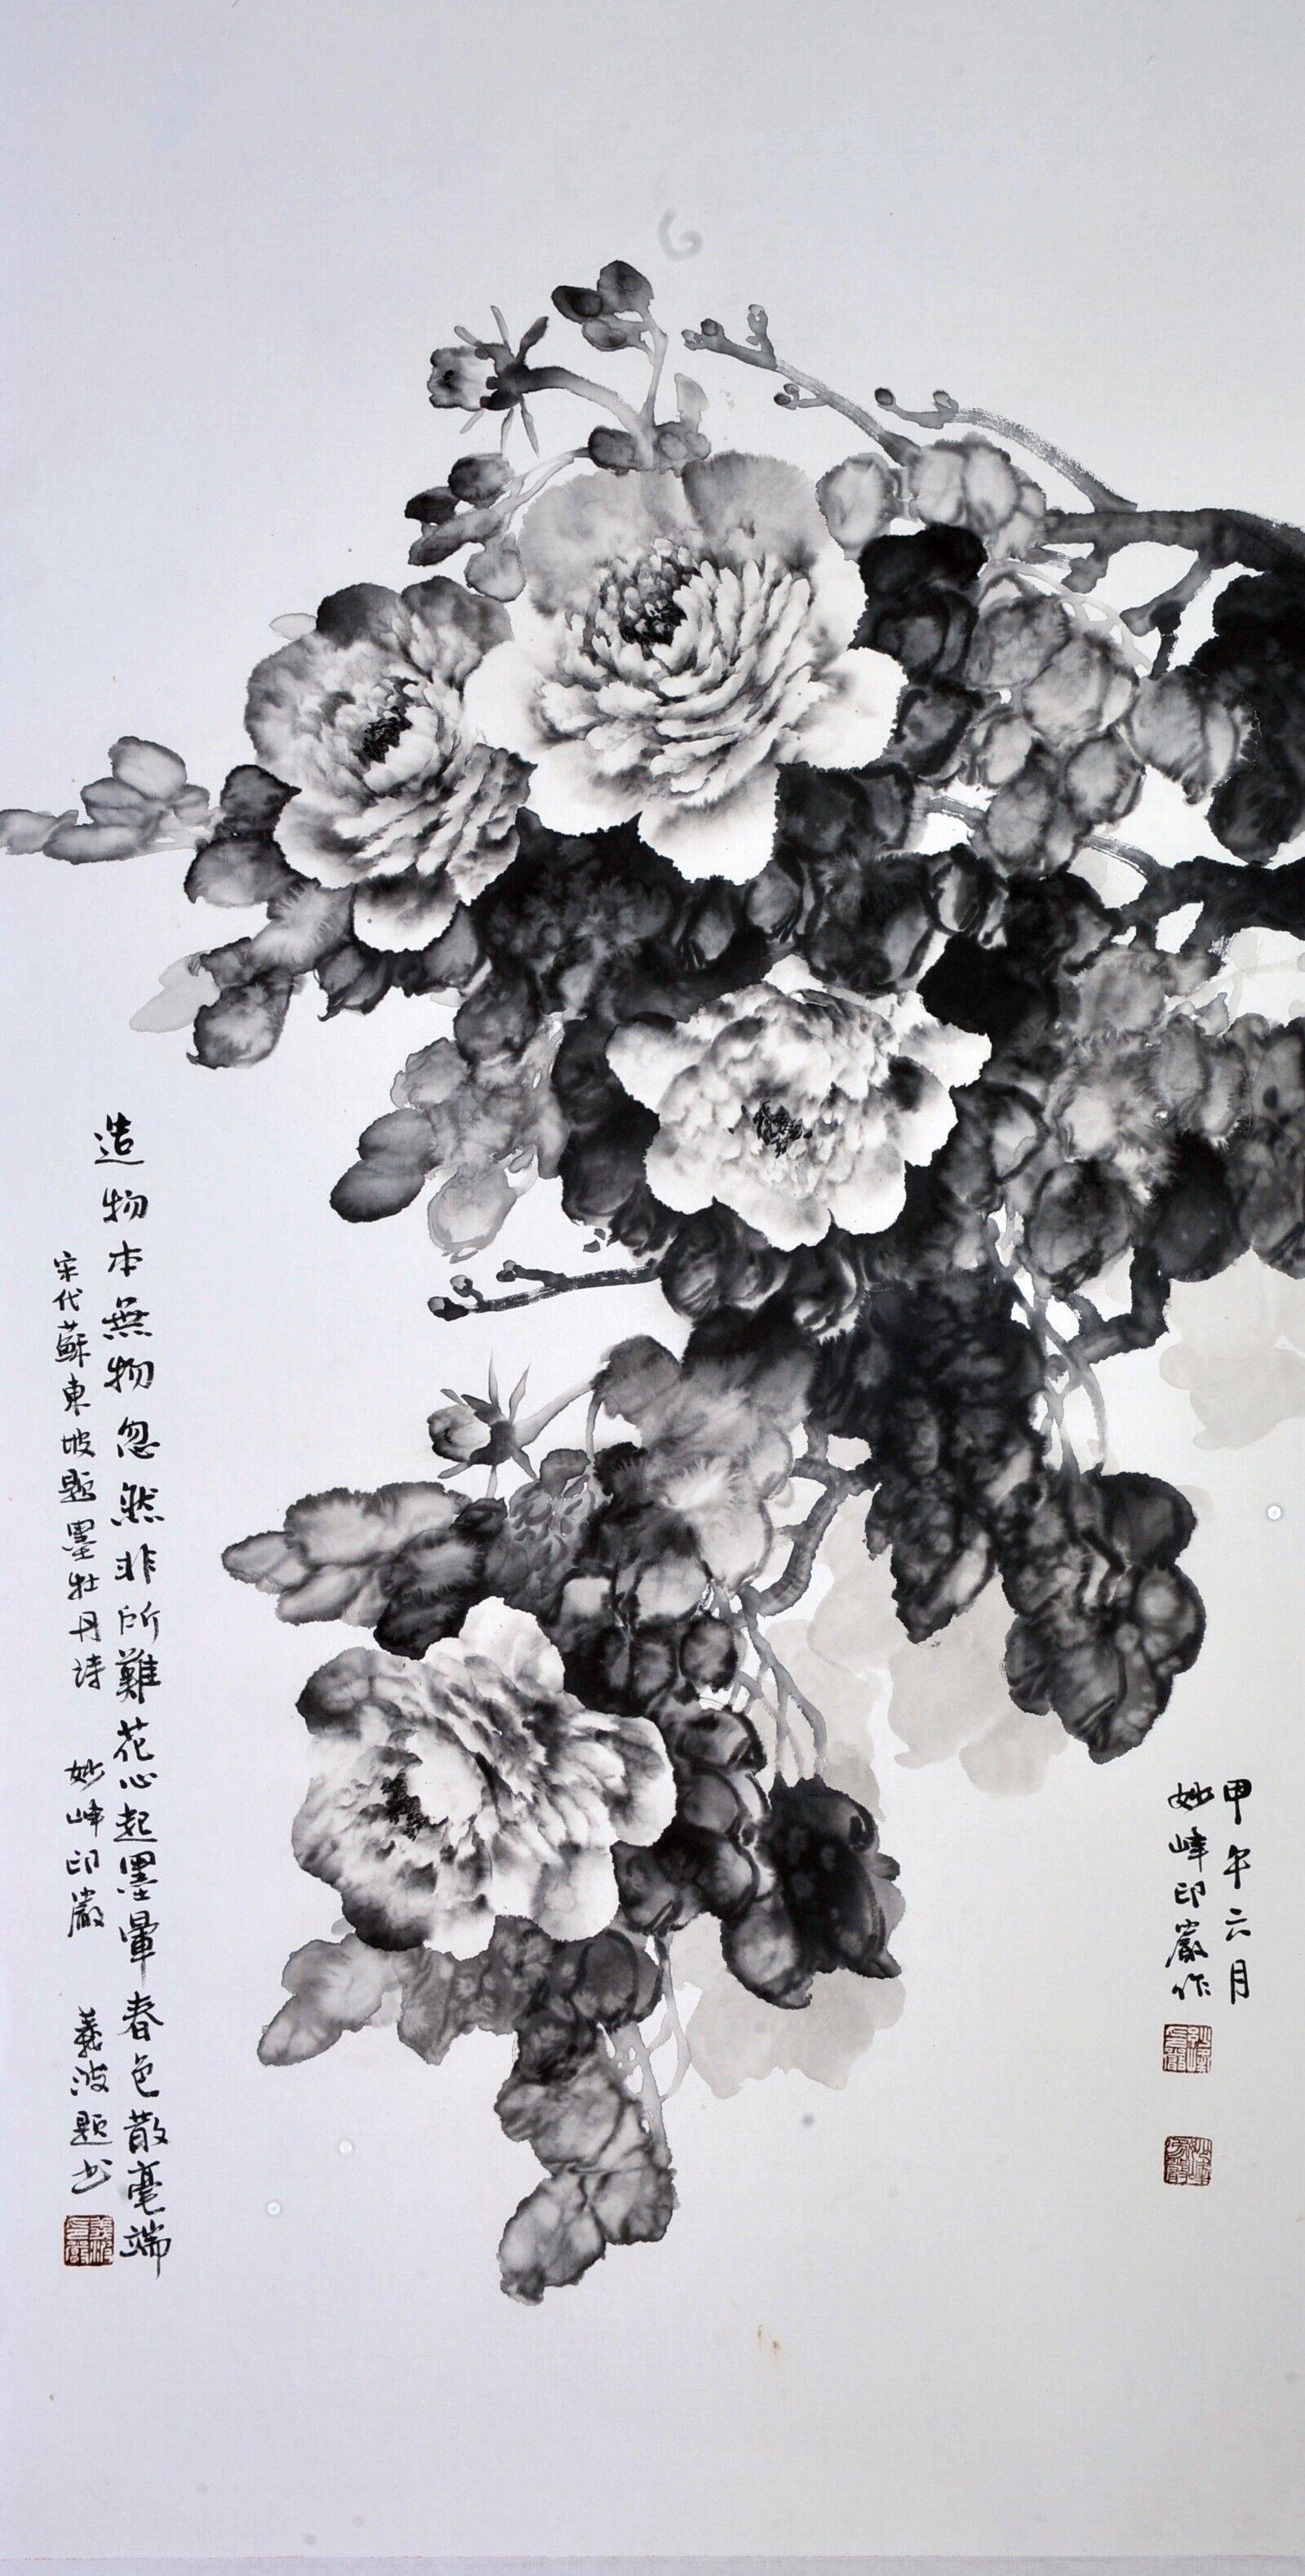 甲午六月
妙峰印嚴作
造物本無物忽然非所難花心起墨暈春色散毫端
宋代蘇東坡題墨牡丹诗 妙峰印嚴 義波题书